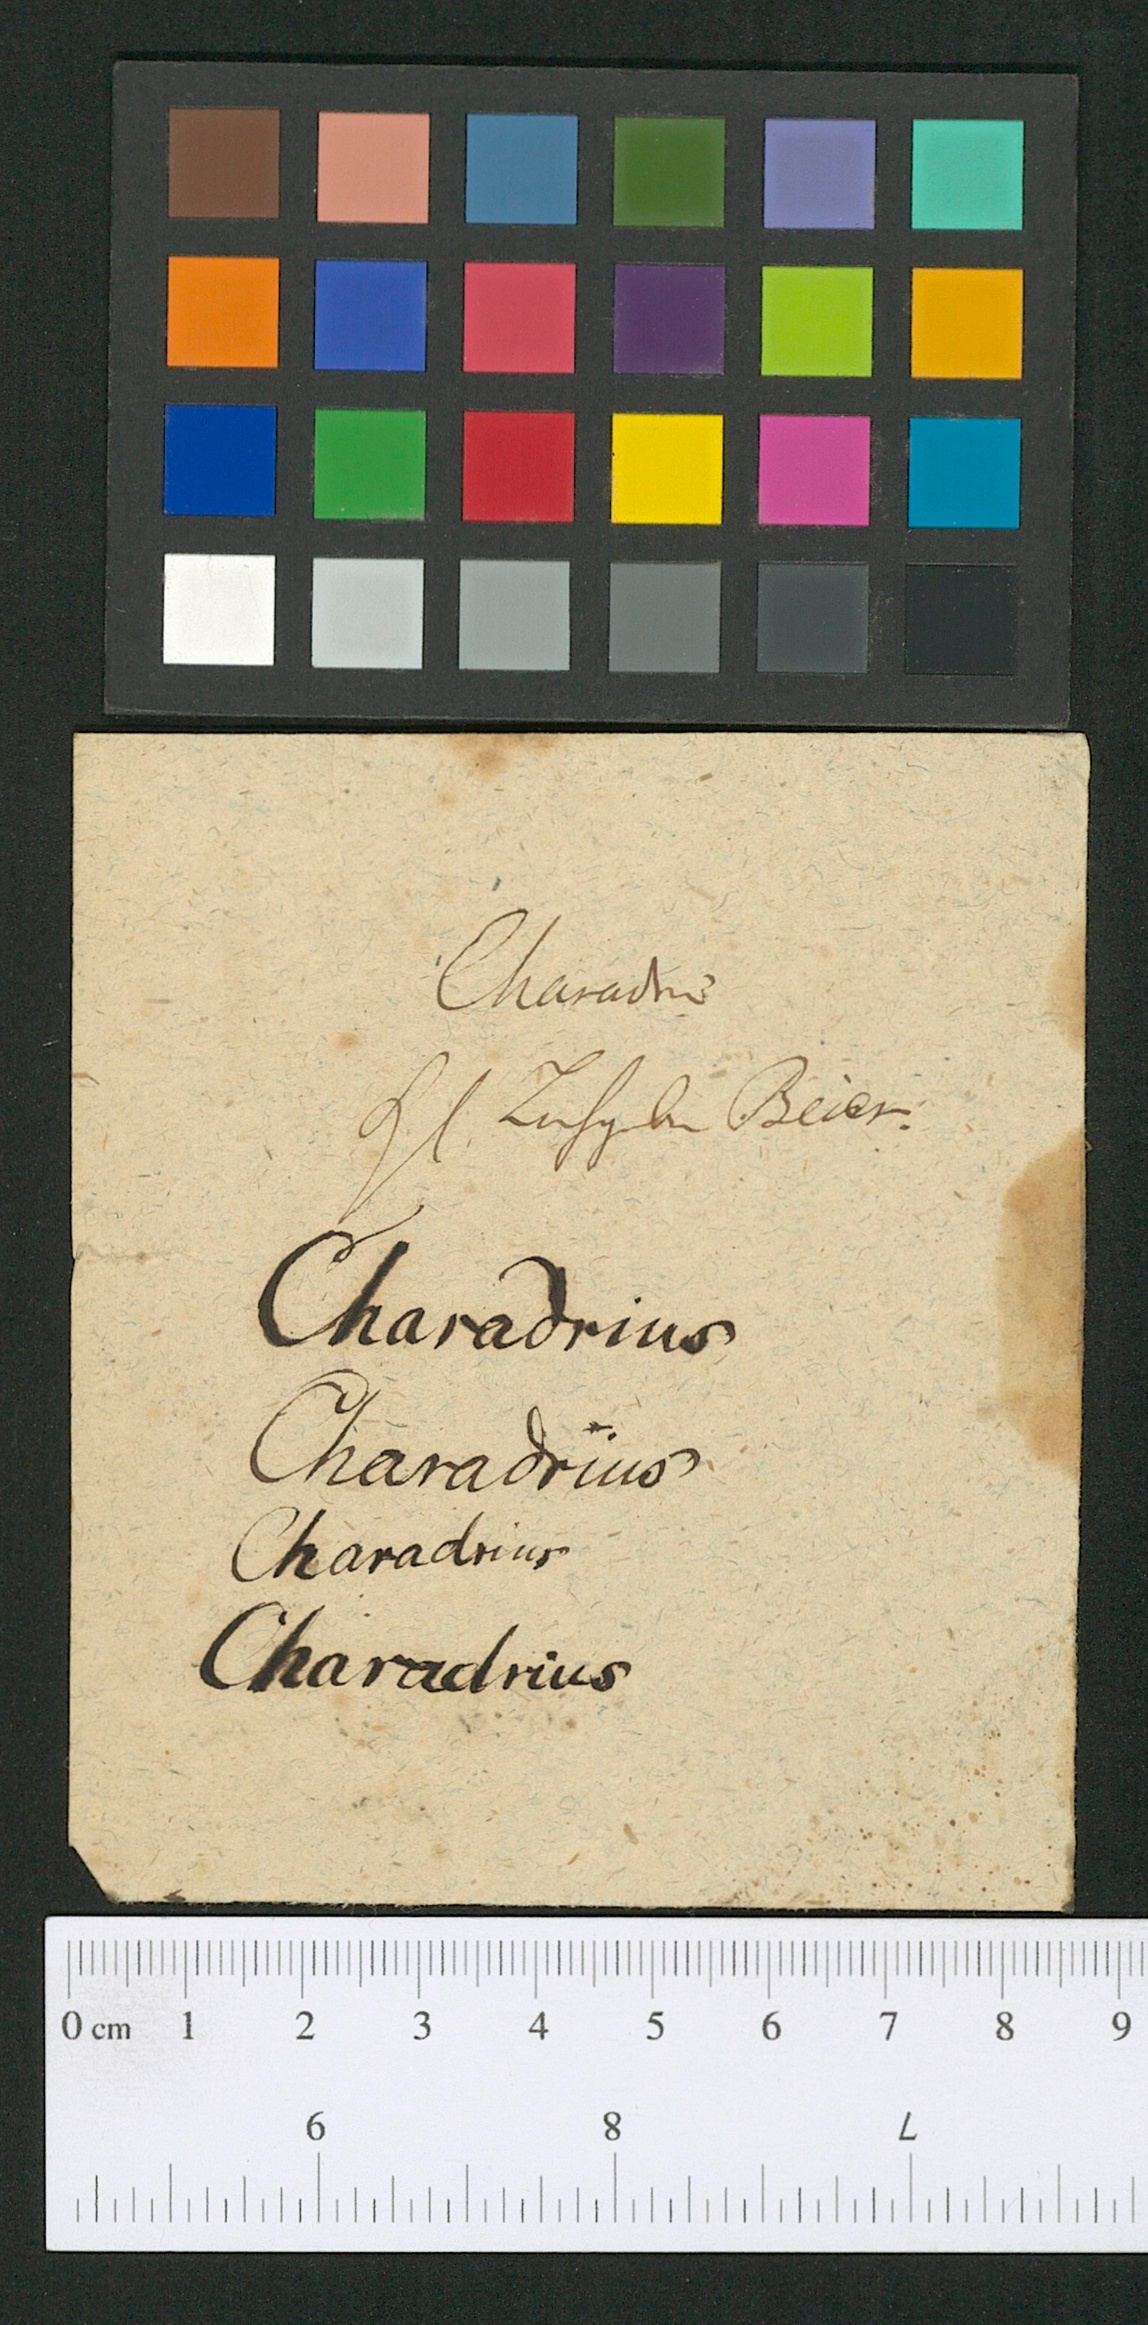 Charadri
Beier.
Charadrius
Charadrius
Charadrius
Charadrius
0 cm 1 2 3 4 5 6 7 8 9
9 8 7